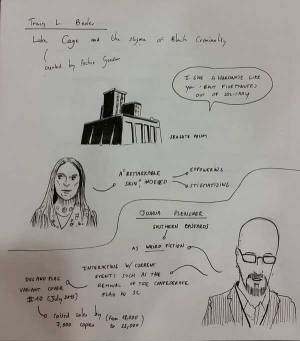 Tracy L. Bealer
Luke Cage and the stigma of Black Criminality
created by Archie Goodwin
I GIVE A HARDNOSE LIKE
YOU
OUT OF SOLITARY
SEAGATE PRISON
A "REMARKABLE
SKIN" MODEED
EMPOWERING
STIGMATIZING
JOSHUA PLENCNER
SOUTHERN BASTARDS
AS WEIRD FICTION
INTERACTING W/ CURRENT
EVENTS SUCH AS THE
REMOVAL OF THE CONFEDERATE
FLAG IN SC
DOG AND FLAG
VARIANT COVER
#10 (July 2015)
raised sales by (from 15,000
7,000 copies to 22,000)